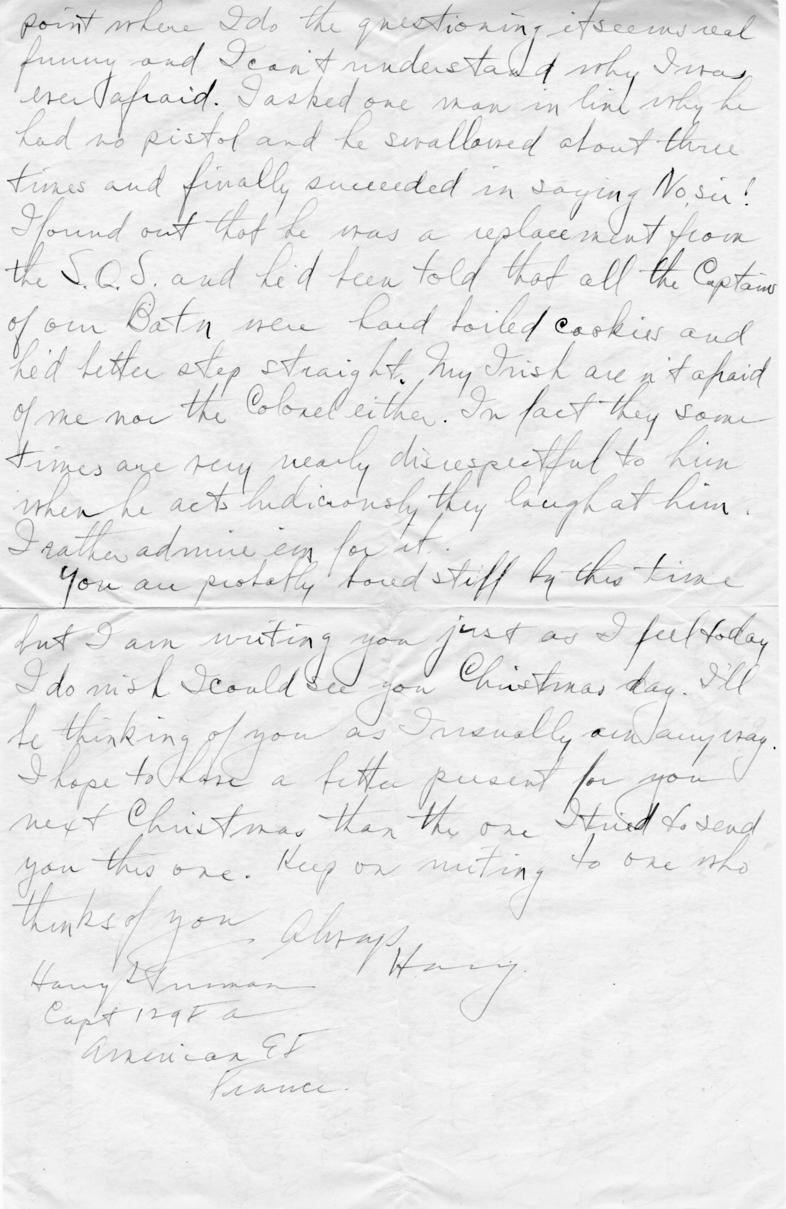 point where I do the questioning it seems real
funny and I can't understand why I was
ever afraid. I asked one man in line why he
had no pistol and he swallowed about three
times and finally succeeded in saying No, sir!
I found out that he was a replacement from
the S.O.S. and he'd been told that all the Captains
of our Batn were hard boiled cookies and
he'd better step straight. My Irish are n't afraid
of me nor the Colonel either. In fact they some
times are very nearly disrespectful to him
when he acts ludicrously they laugh at him.
I rather admire em for it.
You are probably bored stiff by this time
but I am writing you just as I feel today
I do wish I could see you Christmas day. I'll
be thinking of you as I usually am anyway.
I hope to have a better present for you
next Christmas than the one I tried to send
you this one. Keep on writing to one who
thinks of you Always
Harry.
Harry S Truman
Capt 129 F A
American E F
France.